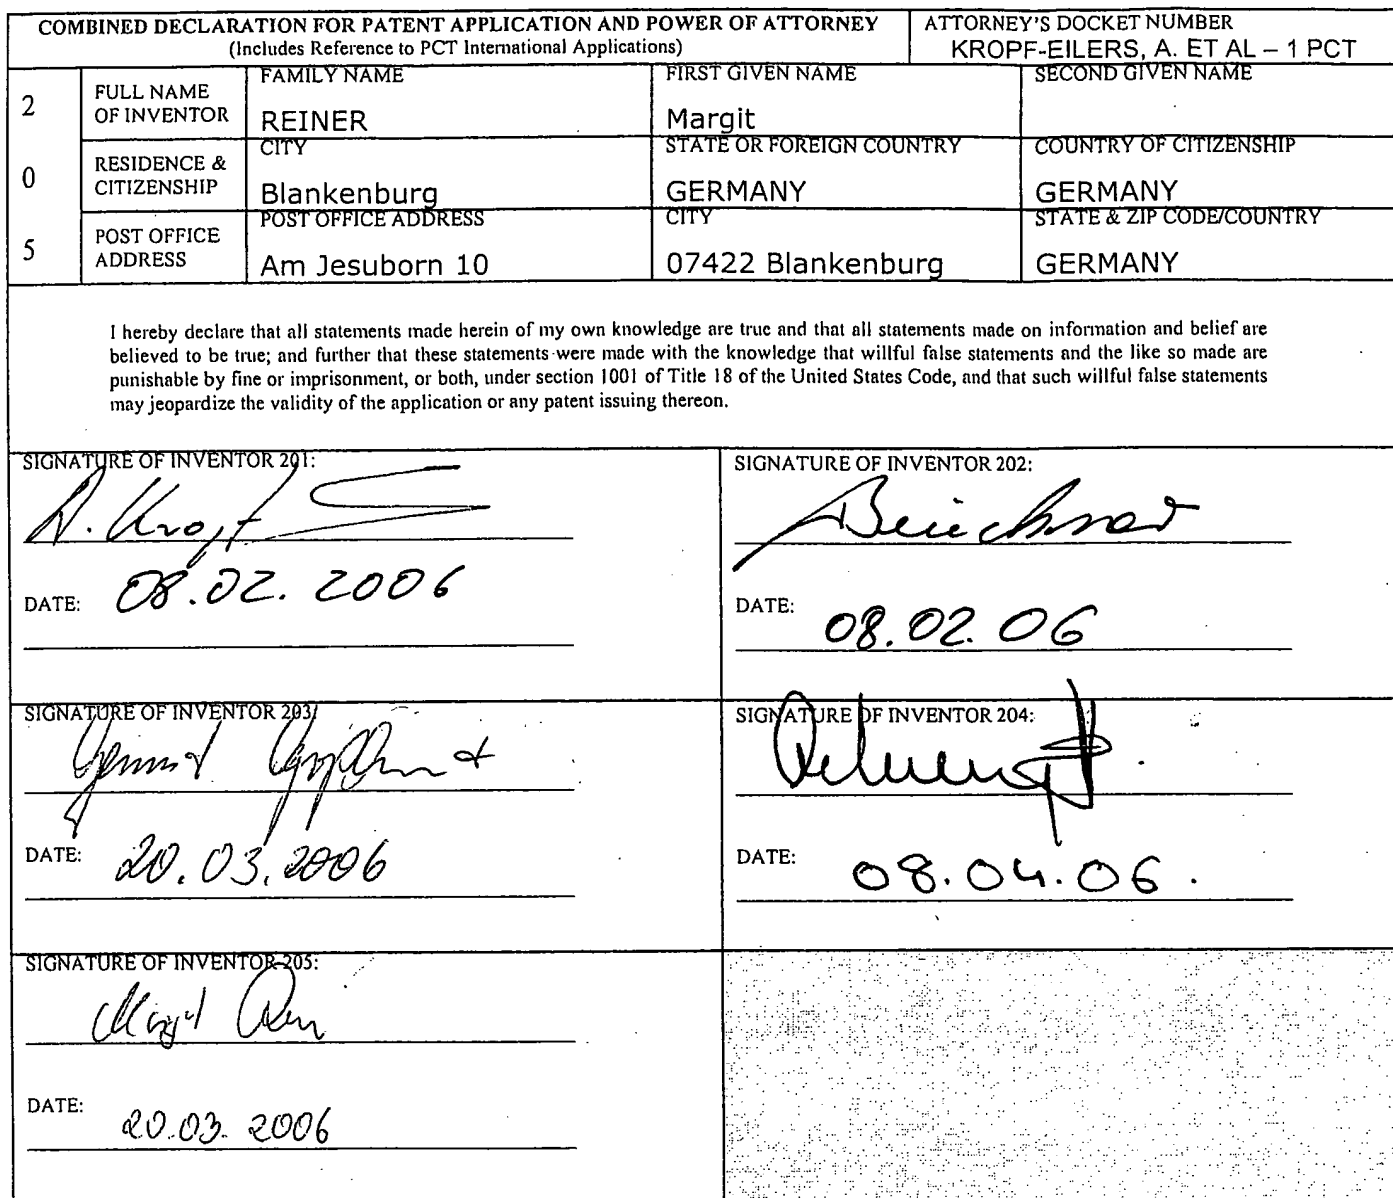 COMBINED DECLARATION FOR PATENT APPLICATION AND POWER OF ATTORNEY
(Includes Reference to PCT International Applications)
ATTORNEY'S DOCKET NUMBER
KROPF-EILERS, A. ET AL – 1 PCT
2 0 5
FULL NAME OF INVENTOR
FAMILY NAME
REINER
FIRST GIVEN NAME
Margit
SECOND GIVEN NAME
RESIDENCE & CITIZENSHIP
CITY
Blankenburg
STATE OR FOREIGN COUNTRY
GERMANY
COUNTRY OF CITIZENSHIP
GERMANY
POST OFFICE ADDRESS
POST OFFICE ADDRESS
Am Jesuborn 10
CITY
07422 Blankenburg
STATE & ZIP CODE/COUNTRY
GERMANY
I hereby declare that all statements made herein of my own knowledge are true and that all statements made on information and belief are
believed to be true; and further that these statements were made with the knowledge that willful false statements and the like so made are
punishable by fine or imprisonment, or both, under section 1001 of Title 18 of the United States Code, and that such willful false statements
may jeopardize the validity of the application or any patent issuing thereon.
SIGNATURE OF INVENTOR 201:
A. Kropf
DATE: 08.02.2006
SIGNATURE OF INVENTOR 202:
DATE: 08.02.06
SIGNATURE OF INVENTOR 203:
DATE: 20.03.2006
SIGNATURE OF INVENTOR 204:
DATE: 08.04.06.
SIGNATURE OF INVENTOR 205:
Margit
DATE: 20.03.2006